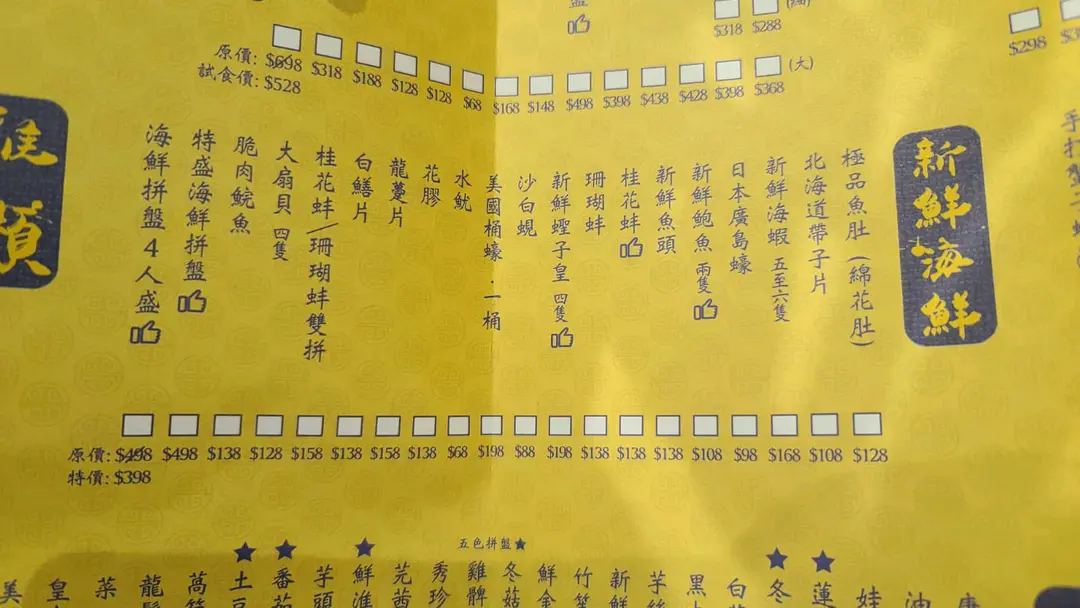 $318 $288
$298
原價: $698 $318 $188 $128 $128 $68 $168 $148 $498 $398 $438 $428 $398 $368 (大)
試食價: $528
新鮮海鮮
極品魚肚(綿花肚)
北海道帶子片
新鮮海蝦 五至六隻
日本廣島蠔
新鮮鮑魚 兩隻
新鮮魚頭
桂花蚌
珊瑚蚌
新鮮蟶子皇 四隻
沙白蜆
美國桶蠔.一桶
水魷
花膠
龍躉片
白鱔片
桂花蚌/珊瑚蚌雙拼
大扇貝 四隻
脆肉鯇魚
特盛海鮮拼盤
海鮮拼盤4人盛
原價: $498 $498 $138 $128 $158 $138 $158 $138 $68 $198 $88 $198 $138 $138 $138 $108 $98 $168 $108 $128
特價: $398
五色拼盤★